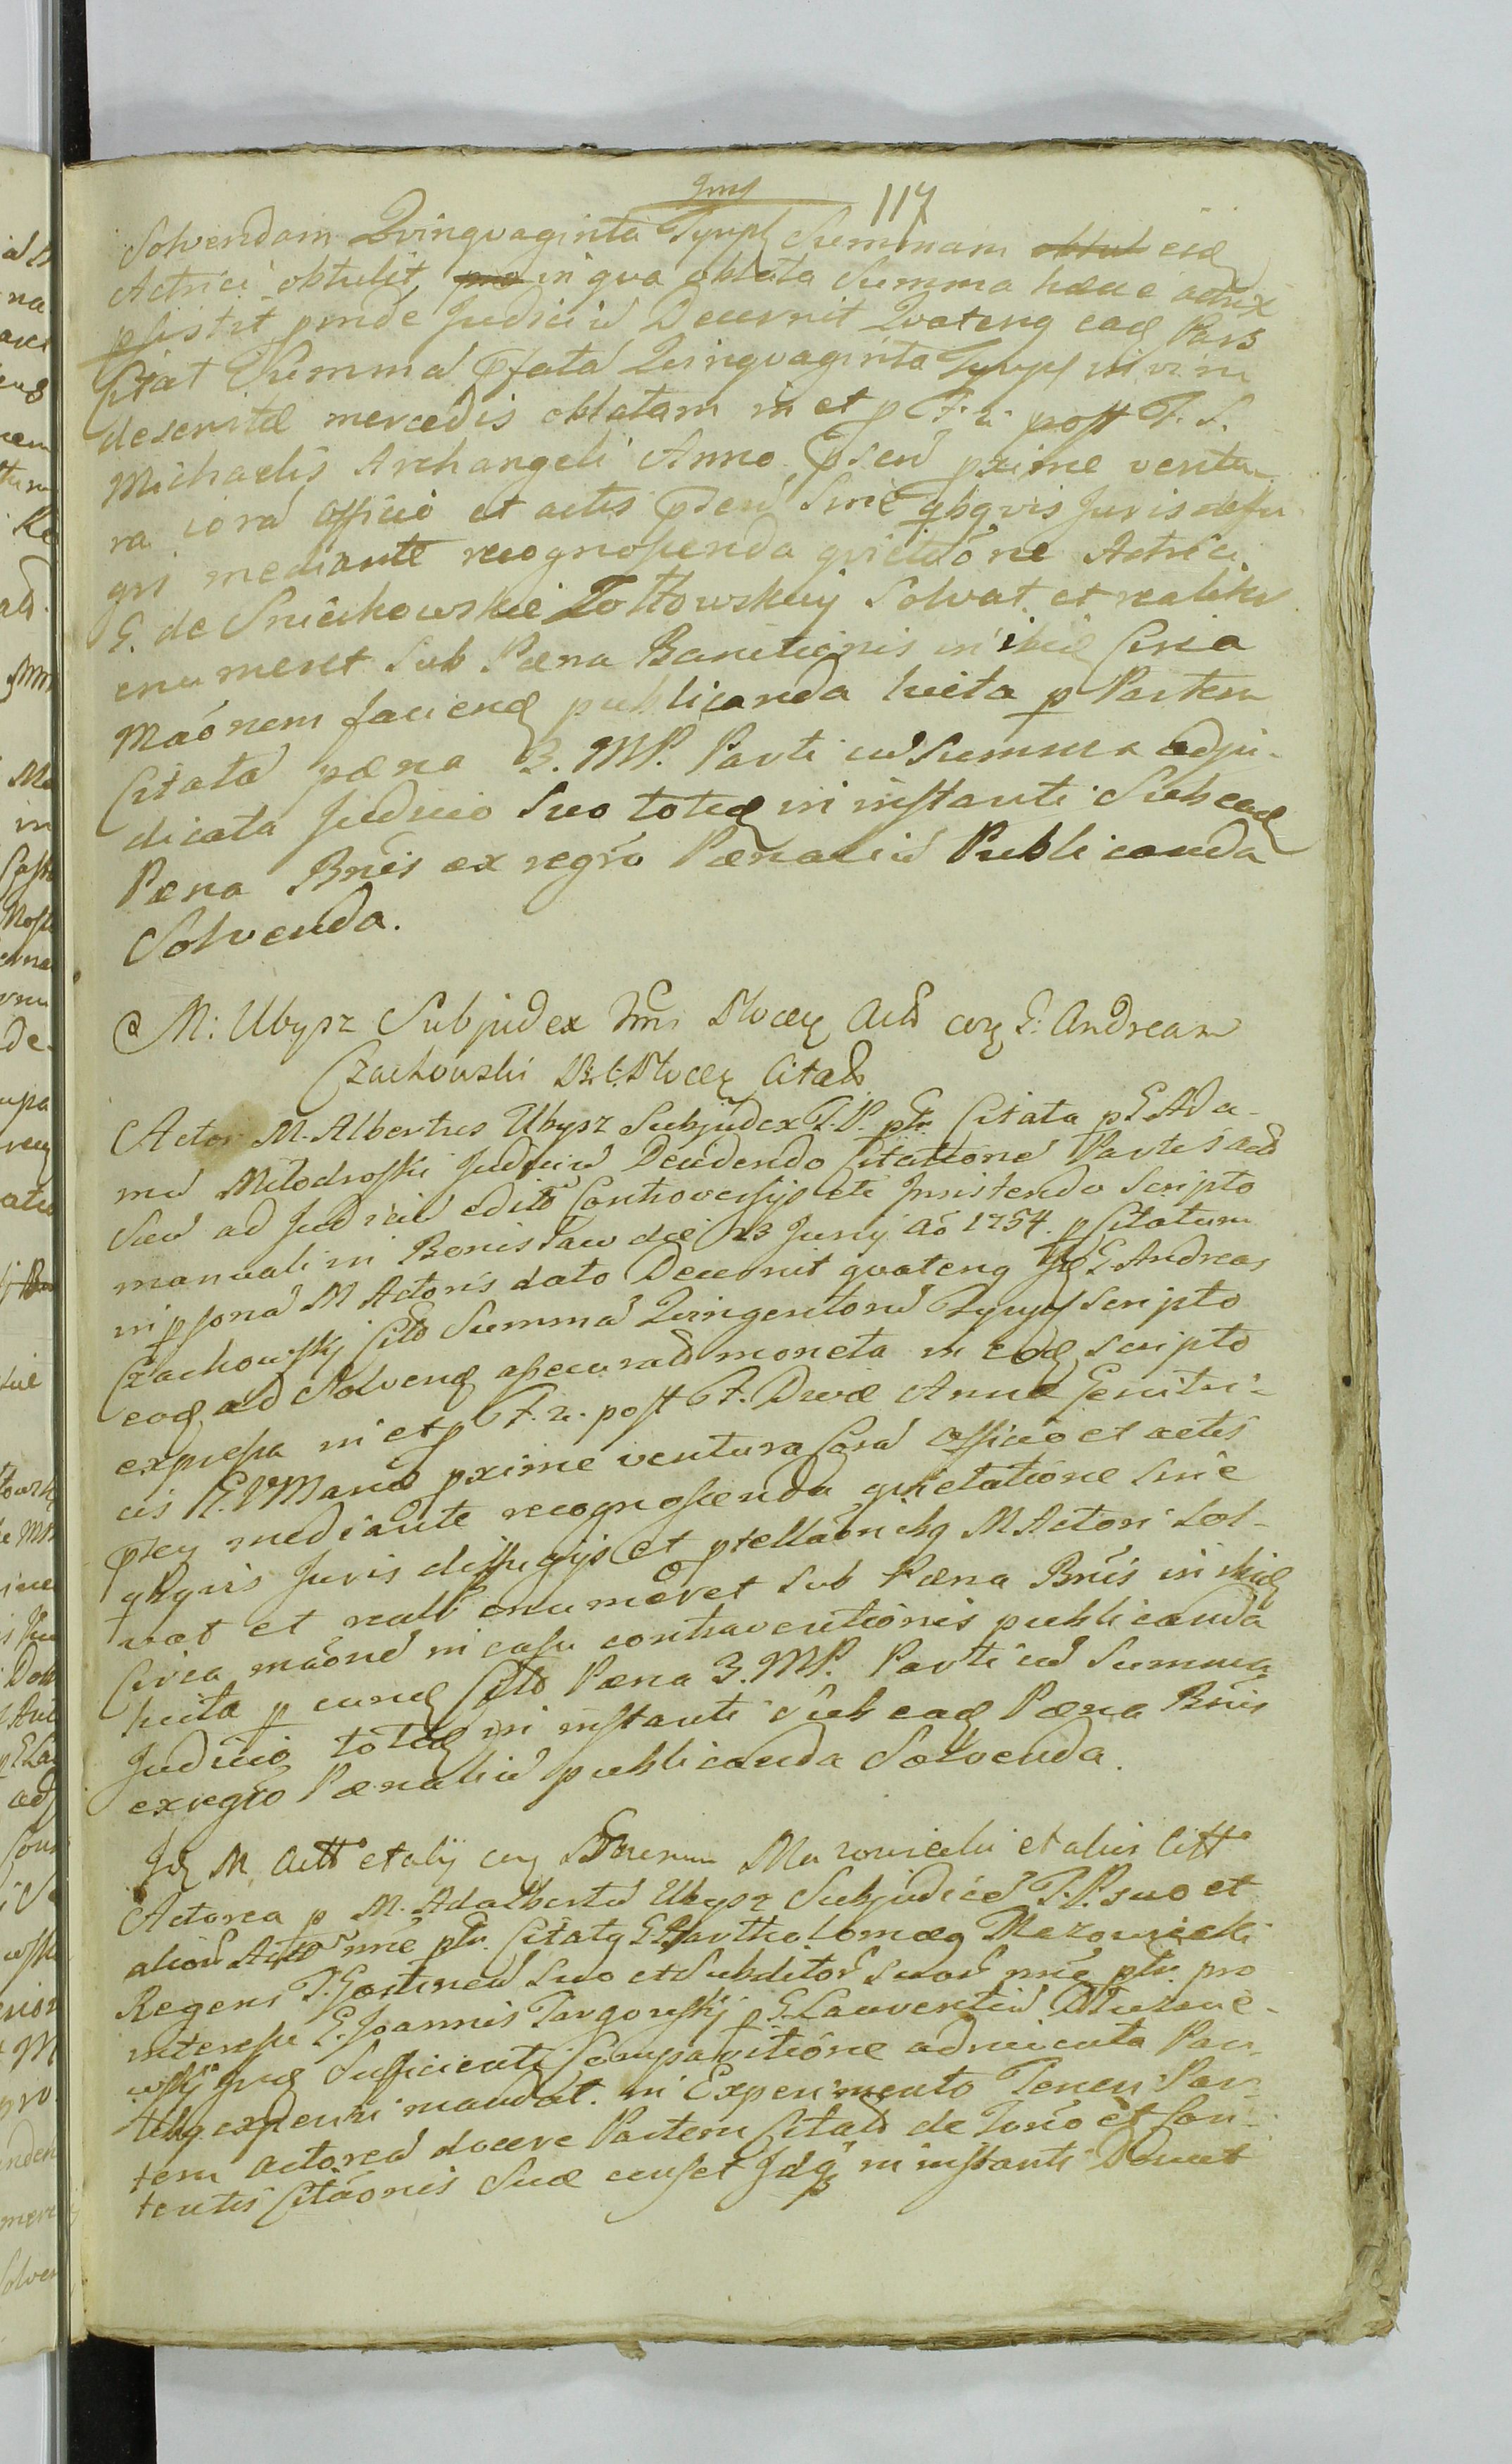 117
Solvendam Qvinqvaginta Tynph Summam eid
Actrici obtulit, in qva oblata Summa hæc actrix
psistit proinde Judiciu Decernit Qvateng ead Pars
Citat Summa Pfata Qvinqvaginta Tynph in vim
deservitæ mercedis oblatam in et p F. 2. post F. S.
Michaelis Archangeli Anno Psen pxime ventu
ra cora officio et actis Pden Sine qbqvis Juris diffu
gijs mediante recognoscenda qvietaóne Actrici
G. de Sniechowskie Zołtowskiy Solvat et realiter
enumeret Sub Pæna Banitionis in ibid Circa
Maónem faciend publicanda luita p Partem
Citata pæna 3. MP. Parti cu Summa adju-
dicata Judicio Suo totid in instanti Sub ead
Pæna Bnis ex regro Pænaliu Publicanda
Solvenda.
M: Ubysz Subjudex Plocen Act cõ G: Andream
Czachowski Plocen Citat
Actor M. Albertus Ubysz Subjudex T. P. ptr Citata p G Ada-
mu Miłodroski Judiciu Decidendo Citatione Partis act
Suu ad Judiciu edito Controversijs ete Jnnitendo Scripto
manuali in Bonisław die 23 Junij Aó 1754. p Citatum
in psona M Actoris dato Decernit qvateng G Andreas
Czachowskj Cito Summa Qvingentoru Tynph scripto
eod ad Solvend assecurat moneta in eod scripto
expressa in et p F. 2. post F. Divæ Annæ Genitri-
cis B. V Mariæ pxime ventura Cora officio et actis
pten mediante recognoscenda qvietatione Sine
qbqvis Juris diffugijs et ptellaónibg M Actori Sol-
vat et realr enumeret Sub Pæna Bnis in ibid
Circa maóne in casu contraventionis publicanda
luita p eund Cito Pæna 3. MP. Parti cu Summa
Judicio totid in instanti Sub ead Pæna Bnis
ex regro Pænaliu publicanda Solvenda.
Jd M Act et alij cõ Mazowiecki et alios Citt
Actorea p M. Adalbertu Ubysz Subjudice T. P. suo et
alioru Act nne ptr. Citatg G Bartholomæg Mazowiecki
Regens T. Gostinen Suo et Subditor Suor nne ptr. pro
interesse G. Joannis Targonskj p G Laurentiu
Sufficienti Comparitione adnicuta Par
tibg expediri mandat. in Experimento Tenen Par-
tem actorea docere Partem Citat de Foro et Con-
tentis Citaónis Suæ censet Jdq in instanti Docuit